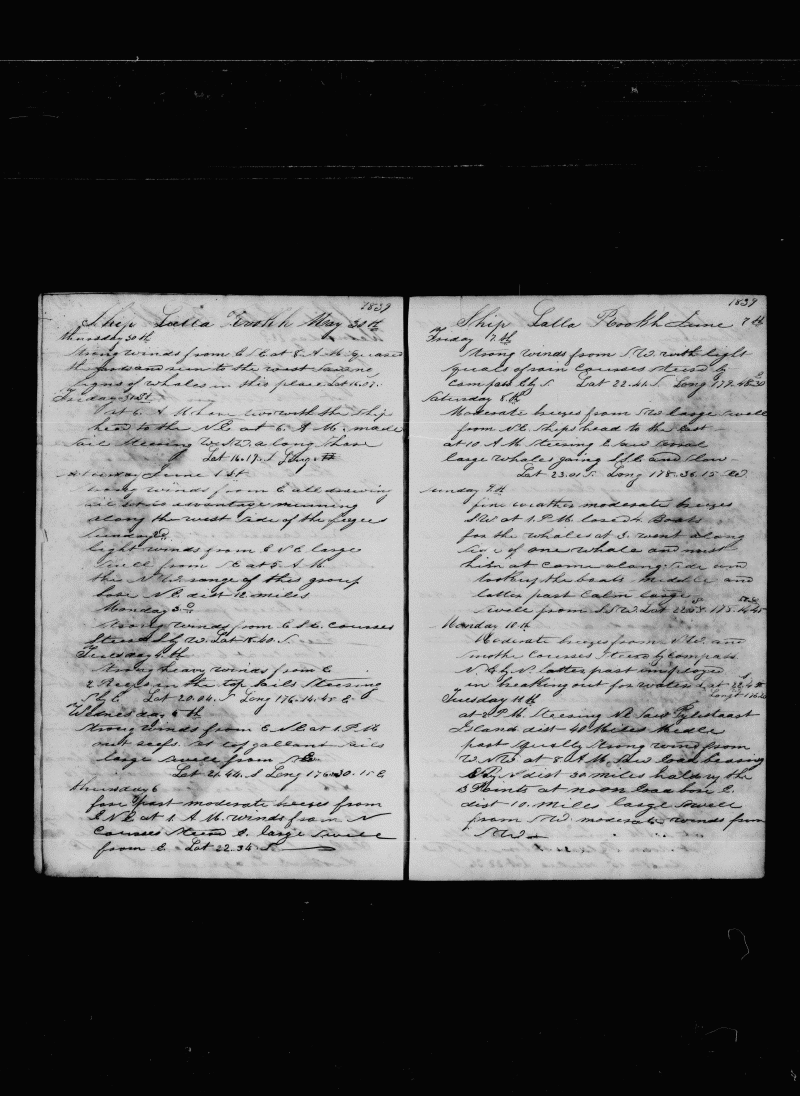 1839
Ship Lalla Rookh May 30th
Thursday 30th
Strong winds from E S E at 8 A.M. Squared
the yards and run to the west
signs of whales in this place Lat 16.07.
Friday 31st
at 6. A M with the ship
head to the N.E at 6. A.M. made
sail steering W.N.W. along shore
Lat 16.17. S
Saturday June 1st
Strong winds from E all drawing
sail to advantage running
along the west side of the fegees
Sunday 2d
light winds from E N E large
swell from S E at 5 A M
the N W range of this group
bore N E dist 12 miles
Monday 3d
Strong winds from E S E Courses
Steerd S by W. Lat 18.40. S
Tuesday 4th
Strong heavy winds from E
2 Reefs in the top sails Steering
S by E Lat 20.04. S Long 176.14.45 E
Wednesday 5th
Strong winds from E N E at 1. P. M
out reefs. set top gallant sails
large swell from
Lat 21.44. S Long 176.30.15 E
Thursday 6
fore part moderate breezes from
E N E at 1. A M. winds from N
Courses Steerd S. large swell
from E. Lat 22.34 S
1839
Ship Lalla Rookh June 7th
Friday 7th
Strong winds from N W. with light
squals of rain Courses steerd by
Compass E by S Lat 22.41 S Long 179.48.30
Saturday 8th
Moderate breezes from large swell
from N E Ships head to the East
at 10 A M Steering E saw
large whales going S.S.E and slow
Lat 23.01 S Long 178.36.15 W.
Sunday 9th
fine weather moderate breezes
S W at 1. P. M. lowerd 4. Boats
for the whales at 3. went along
side of one whale and mist
him at came along side and
took up the boats Middle and
latter part Calm large
swell from S.S.W. Lat
Monday 10th
Moderate breezes from N W. and
smothe Courses Steerd by Compass
N. E by N. Latter part imployed
in breaking out for water Lat
Tuesday 11th
at 2 P. M. Steering N E Saw Pylstaart
Island dist 40 Miles Midle
part Squally Strong wind from
W. N W at 8 A. M. Saw Eoa bearing
E by N dist 30 miles hald by the
Points at noon Eoa bore E.
dist 10. Miles large swell
from S W. moderate winds from
N W